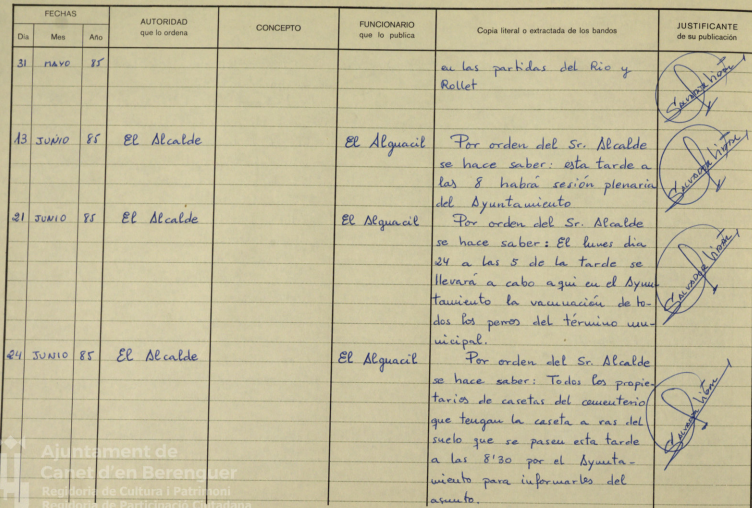 FECHAS
Día Mes Año
AUTORIDAD
que lo ordena
CONCEPTO
FUNCIONARIO
que lo publica
Copia literal o extractada de los bandos
JUSTIFICANTE
de su publicación
31 MAYO 85 en las partidas del Rio y
Rollet
13 JUNIO 85 El Alcalde El Alguacil Por orden del Sr. Alcalde
se hace saber: esta tarde a
las 8 habrá sesión plenaria
del Ayuntamiento
21 JUNIO 85 El Alcalde El Alguacil Por orden del Sr. Alcalde
se hace saber: El lunes dia
24 a las 5 de la tarde se
llevará a cabo aqui en el Ayun-
tamiento la vacunación de to-
dos los perros del término mu-
nicipal.
24 JUNIO 85 El Alcalde El Alguacil Por orden del Sr. Alcalde
se hace saber: Todos los propie-
tarios de casetas del cementerio
que tengan la caseta a ras del
suelo que se pasen esta tarde
a las 8'30 por el Ayunta-
miento para informarles del
asunto.
Salvador
Salvador
Salvador
Salvador
Ajuntament de
Canet d'en Berenguer
Regidoria de Cultura i Patrimoni
Regidoria de Participació Ciutadana